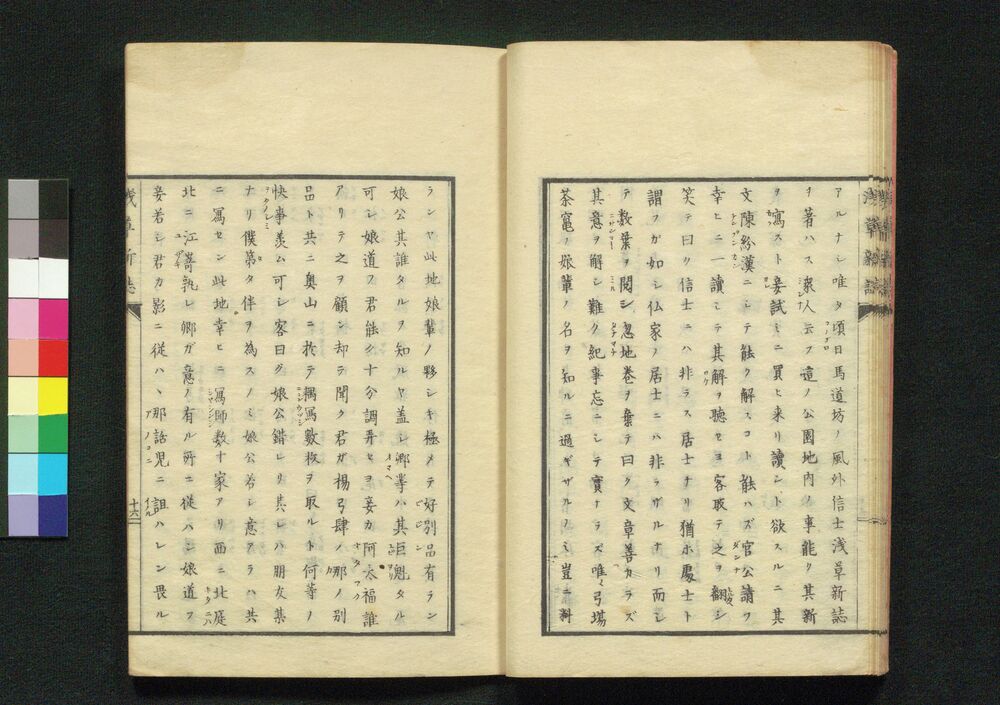 アルナシ唯タ頃日馬道坊ノ風外信士浅草新誌
ヲ著ハス衆人云フ這ノ公園地内ノ事能ク其新
ヲ寫スト妾試ミニ買ヒ来リ讀ント欲スルニ其
文陳紛漢ニシテ能ク解スコト能ハズ官公請フ
幸ヒニ一讀シテ其解ヲ聴セヨ客取テ之ヲ翻シ
笑テ曰ク信士ニハ非ラス居士ナリ猶ホ處士ト
謂フガ如シ仏家ノ居士ニハ非ラザルナリ而シ
テ数葉ヲ閲シ忽地巻ヲ棄テ曰ク文章善カラズ
其意ヲ解シ難ク紀事忘ニシテ實ナラズ唯々弓場
茶竃ノ娘輩ノ名ヲ知ルニ過ギザルノミ豈ニ料
ランヤ此地娘輩ノ夥シキ極メテ好別品有ラン
娘公其誰タルヲ知ルヤ蓋シ卿等ハ其巨魁タル
可シ娘道フ君能ク十分調弄セヨ妾カ阿太福誰
アリテ之ヲ顧シ却テ聞ク君ガ楊弓肆ノ那ノ別
品ト共ニ奥山ニ於テ耦寫數枚ヲ取ルト何等ノ
快事羨ム可シ客曰ク娘公錯レリ其レハ朋友某
ナリ僕第タ伴ヲ為スノミ娘公若シ意アラハ共
ニ寫セン此地幸ヒニ寫師数十家アリ西ニ北庭
北ニ江嵜孰レ卿ガ意ノ有ル所ニ従ハン娘道フ
妾若シ君カ影ニ従ハヽ那話児ニ詛ハレン畏ル
十六